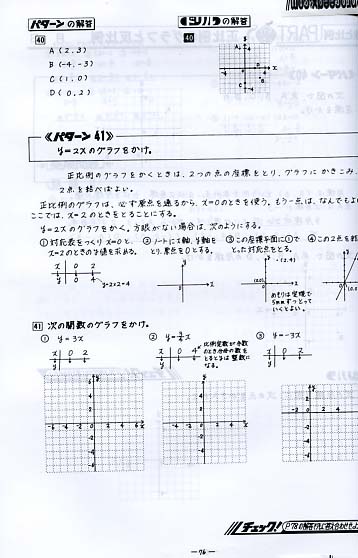 パターンの解答
シハラの解答
40
A (2, 3)
B (-4, -3)
C (1, 0)
D (0, 2)
40
《パターン 41》
y=2xのグラフをかけ。
正比例のグラフをかくときは、2つの点の座標をとり、グラフにかきこみ、
2点を結べばよい。
正比例のグラフは、必ず原点を通るから、x=0のときを使う。もう一点は、なんでもよ
ここでは、x=2のときをとることにする。
y=2xのグラフをかく。方眼がない場合は、次のようにする。
① 対応表をつくりx=0と、
x=2のときのyの値を求める。
② ノートにx軸、y軸を
とり、原点をOとする。
③ この座標平面に①で
とった対応点をとる。
④ この2点を結
x 0 2
y 0 4
y=2×2=4
(2,4)
(0,0)
めもりは定規で
5mmずつとって
いくとよい。
41 次の関数のグラフをかけ。
① y=3x
x 0 2
y
② y=3/4x
x 0 4
y
比例定数が分数
のとき分母の数を
とるとyは整数に
なる。
③ y=-3x
x 0 2
y
チェック!
P78の解答
-76-